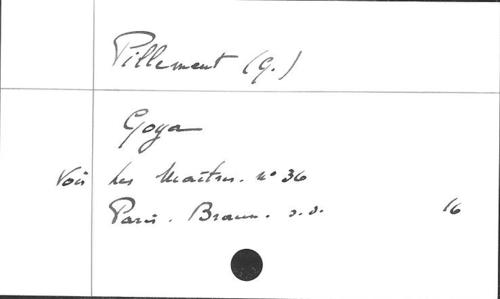 Pillement (G.)
Goya
Voir Les Maîtres. n° 36
Paris. Braun. s.d. 16